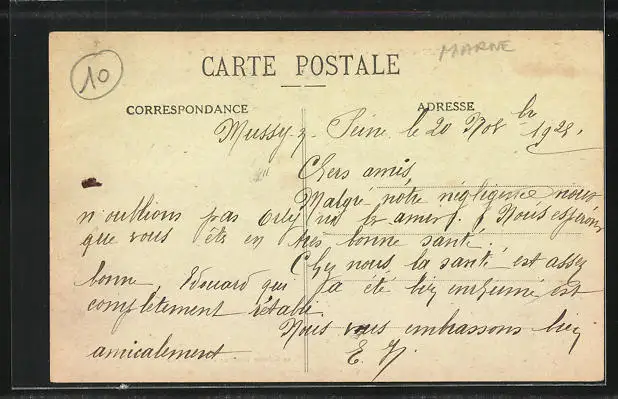 10
MARNE
CARTE POSTALE
CORRESPONDANCE
ADRESSE
Mussy s. Seine le 20 Nov bre 192
Chers amis,
Malgré notre négligence nous
n'oublions pas Nous espérons
que vous êtes en très bonne santé.
Chez nous la santé est assez
bonne, Edouard qui a été bien enrhumé est
complètement rétabli.
Nous vous embrassons bien
amicalement